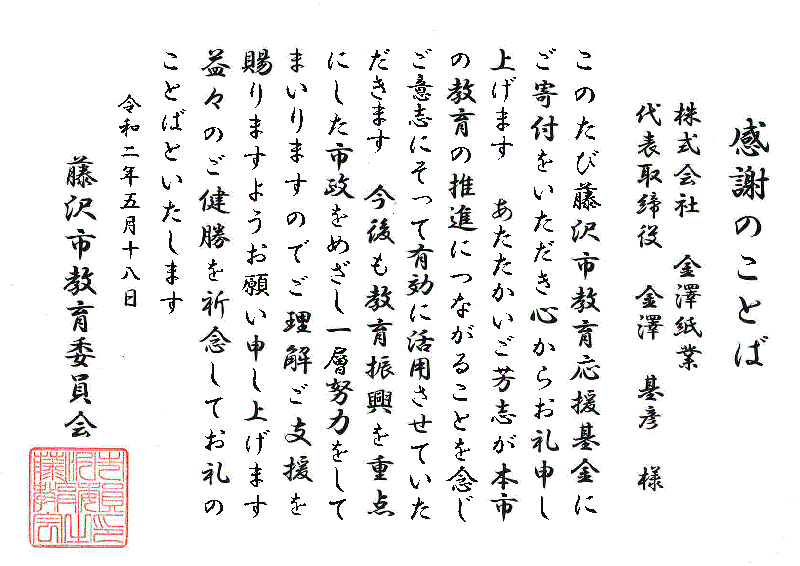 感謝のことば
株式会社 金澤紙業
代表取締役 金澤 基彦 様
このたび藤沢市教育応援基金に
ご寄付をいただき心からお礼申し
上げます あたたかいご芳志が本市
の教育の推進につながることを念じ
ご意志にそって有効に活用させていた
だきます 今後も教育振興を重点
にした市政をめざし一層努力をして
まいりますのでご理解ご支援を
賜りますようお願い申し上げます
益々のご健勝を祈念してお礼の
ことばといたします
令和二年五月十八日
藤沢市教育委員会